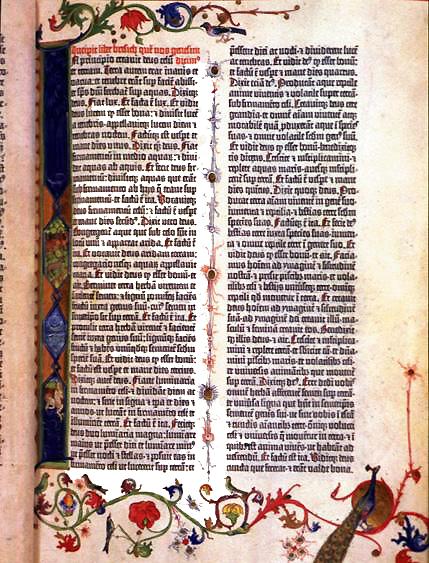 Incipit liber bresich quē nos genesim
In principio creauit deus celū dicim⁹
et terram. Terra autem erat inanis et
vacua: et tenebre erāt sup faciē abissi:
et sp̄s dn̄i ferebat̄ sup aquas. Dixitq;
deus. Fiat lux. Et facta ē lux. Et vidit
deus lucem q̄ esset bona: et diuisit lucē
a tenebris· appellauitq; lucem diem et
tenebras noctem. Factūq; est vespe et
mane dies unus. Dixit q̄ deus. Fiat
firmamentū in medio aquaꝝ: et diui-
dat aquas ab aquis. Et fecit deus fir-
mamentū: diuisitq; aquas que erāt
sub firmamento ab hijs q̄ erant sup
firmamentū: et factū ē ita. Vocauitq;
deus firmamentū celū: et factū ē vespe
et mane dies secūd⁹. Dixit vero deus.
Congregent̄ aque que sub celo sūt in
locū unū et appareat arida. Et factū ē
ita. Et vocauit deus aridam terram:
congregacionesq; aquaꝝ appellauit
maria. Et vidit deus q̄ esset bonū· et
ait. Germinet terra herbā virentem et
facientē semen: et lignū pomifeꝝ faciēs
fructū iuxta genus suū· cui⁹ semen in
semetipso sit sup terrā. Et factū ē ita. Et
protulit terra herbā virentē et facientē
semē iuxta genus suū: lignūq; faciēs
fructū et habēs unūqdq; sementē scdm
speciē suā. Et vidit deus q̄ esset bonū:
et factū est vespe et mane dies tercius.
Dixitq; autē deus. Fiant luminaria
in firmamēto celi· et diuidant diem ac
noctē: et sint in signa et tpa et dies et
annos· ut luceāt in firmamēto celi et
illuminent terrā. Et factū ē ita. Fecitq;
deus duo luminaria magna: lumiare
maius ut pesset diei et lumiare min⁹
ut pesset nocti· et stellas· et posuit eas in
firmamēto celi ut lucerent sup terrā: et
pessent diei ac nocti· et diuiderent lucē
ac tenebras. Et vidit de⁹ q̄ esset bonū:
et factū ē vespe et mane dies quartus.
Dixit eciā de⁹. Producant aque reptile
anime viuentis et volatile sup terrā·
sub firmamēto celi. Creauitq; deus cete
grandia· et omnē aīam viuentē atq;
motabilē quā pduxerāt aque ī species
suas· et omne volatile scdm gen⁹ suū.
Et vidit deus q̄ esset bonū· benedixitq;
eis dicens. Crescite et multiplicamini· et
replete aquas maris· auesq; multipli-
cent̄ sup terrā. Et factū ē vespe et mane
dies quintus. Dixit quoq; deus. Pro-
ducat terra aīam viuentē in gene̅ suo·
iumenta et reptilia· et bestias terre scdm
species suas. Factūq; ē ita. Et fecit de⁹
bestias terre iuxta species suas· iumen-
ta et omne reptile terre ī genere suo. Et
vidit deus q̄ esset bonū· et ait. Facia-
mus hoīem ad ymaginē et similitudinē
nostrā· et presit piscibȝ maris· et vola-
tilibȝ celi et bestijs uniuseq; terre· omniq;
reptili qd mouetur ī terra. Et creauit
deus hoīem ad ymaginē et similitudinē
suā· ad ymaginem dei creauit illū· ma-
sculū et feminā creauit eos. Benedixitq;
illis deus· et ait. Crescite et multiplica-
mini et replete terrā· et subicite eā· et dn̄a-
mini piscibȝ maris· et volatilibȝ celi·
et uniuersis animātibȝ que mouentur
sup terrā. Dixitq; de⁹. Ecce dedi vobis
omnē herbā afferentē semen sup terrā·
et uniūsa ligna que hn̄t in semetipsis
sementē genis sui· ut sint vobis ī escā
et cunctis aīantibȝ terre· oīniq; volucri
celi et uniuersis q̄ mouent̄ in terra· et ī
quibȝ est anima viuēs· ut habeāt ad
vescendū. Et factū est ita. Viditq; deus
cuncta que fecerat· et erāt valde bona.